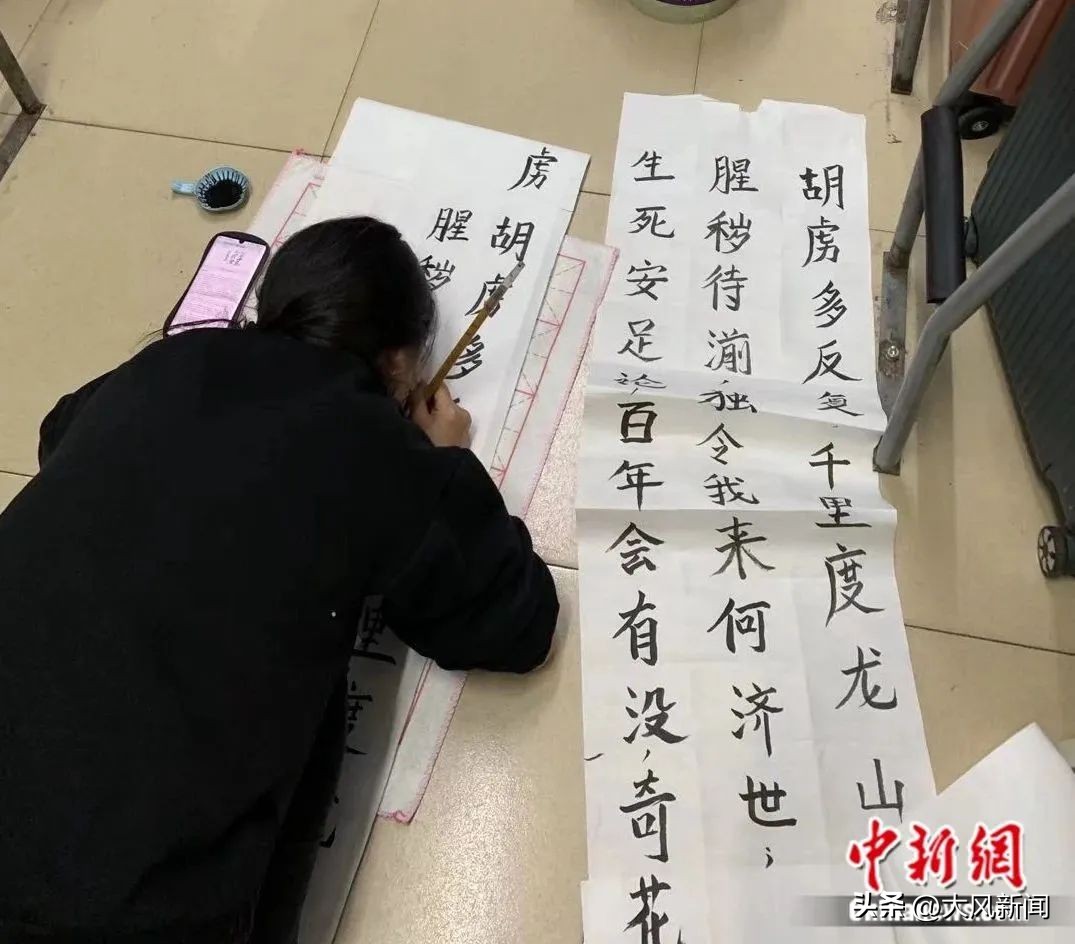 胡虏多反复,千里度龙山
腥秽待湔,独令我来何济世;
生死安足论,百年会有没,奇花
虏
胡虏多
腥秽
里度
中新網
头条 @大风新闻